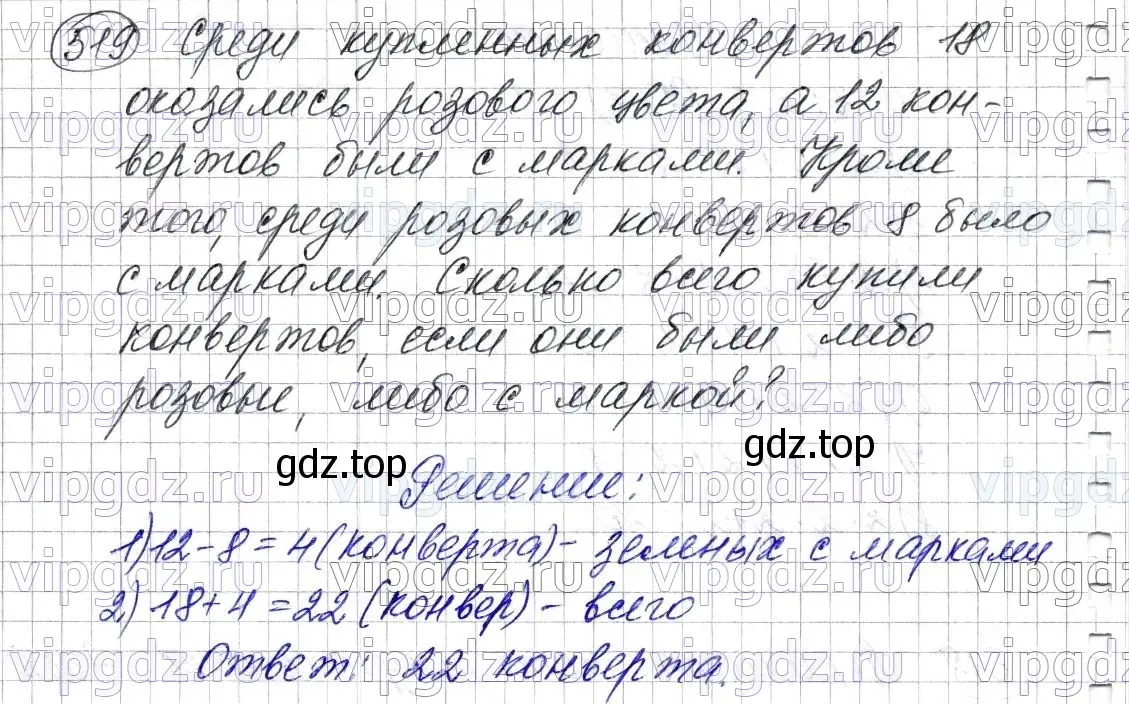 519 Среди купленных конвертов 18
оказались розового цвета, а 12 кон-
вертов были с марками. Кроме
того, среди розовых конвертов 8 было
с марками. Сколько всего купили
конвертов, если они были либо
розовые, либо с маркой?
gdz.top
gdz.top
Решение:
1) 12 - 8 = 4 (конверта) - зеленых с марками
2) 18 + 4 = 22 (конвер) - всего
Ответ: 22 конверта.